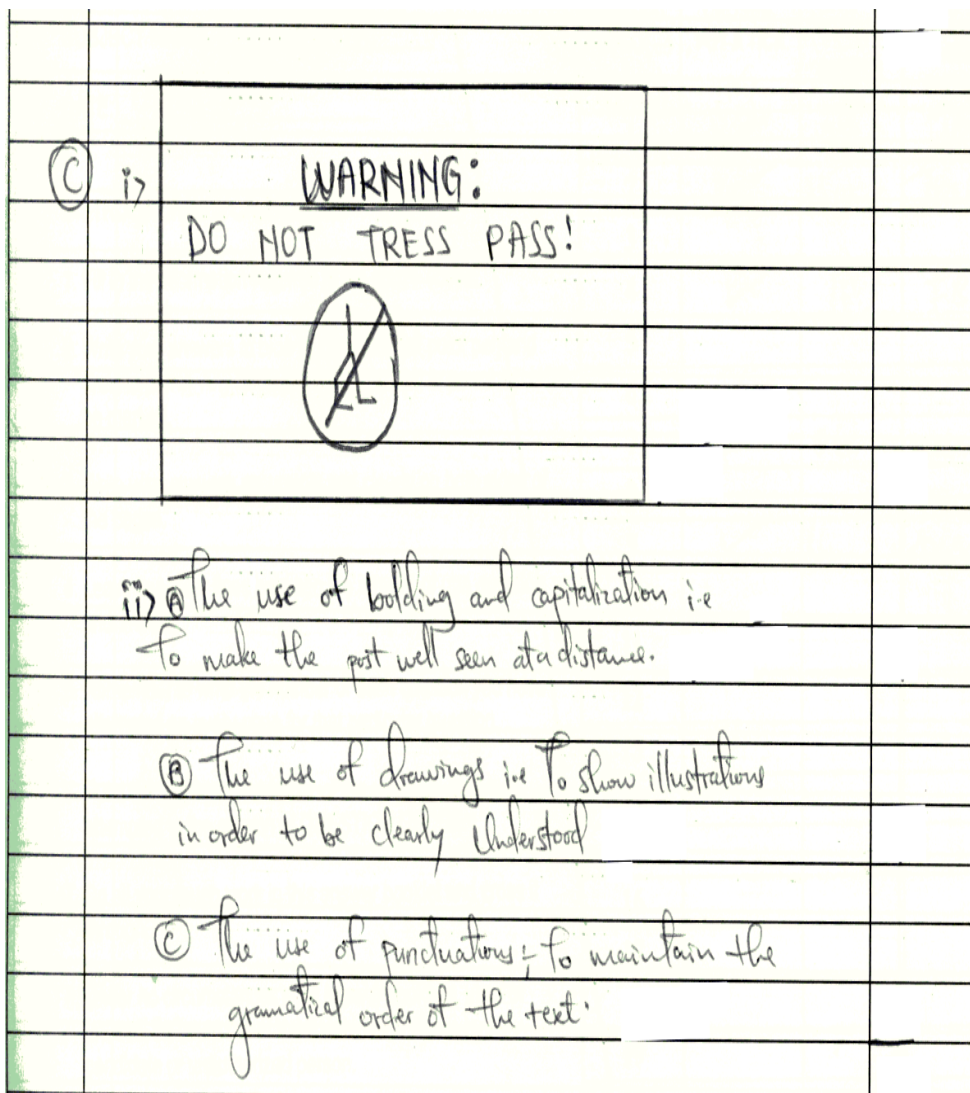 C i> WARNING:
DO NOT TRESS PASS!
ii> A The use of bolding and capitalization i.e
To make the post well seen at a distance.
B The use of drawings i.e To show illustrations
in order to be clearly Understood
C The use of punctuations; To maintain the
gramatical order of the text.